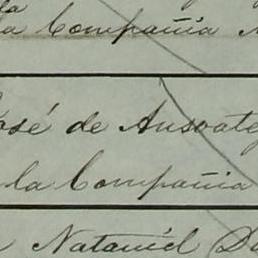 la
la Compañia
José de Ansoateg
la Compañia
Nataniel Da